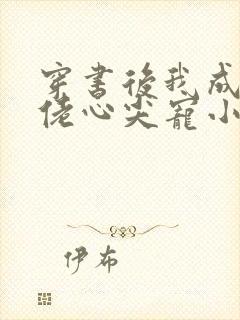 穿書後我成
佬心尖寵小
伊布